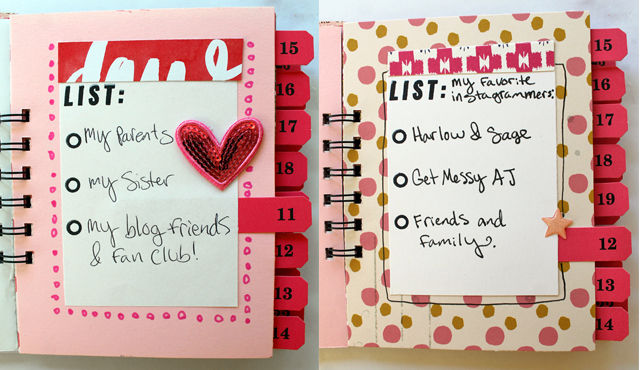 LIST:
My Parents
my Sister
my blog friends
& fan club!
15
16
17
18
11
12
13
14
LIST: My Favorite
instagrammers:
Harlow & Sage
Get Messy AJ
Friends and
family.
15
16
17
18
19
12
13
14